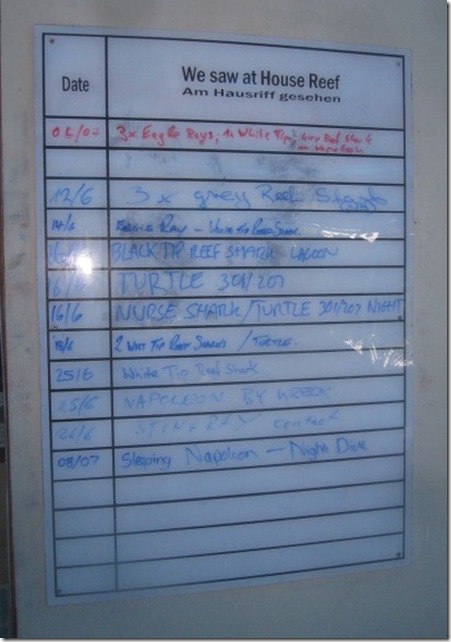 Date
We saw at House Reef
Am Hausriff gesehen
3x Eagle Rays, 1x White Tip, Grey Reef Shark
12/6 3x grey Reef Sharks
14/6 Eagle Ray - White Tip Reef Shark
16/6 BLACK TIP REEF SHARK LAGOON
16/6 TURTLE 301/207
16/6 NURSE SHARK/TURTLE 301/207 NIGHT
2 White Tip Reef Sharks / Turtle.
25/6 White Tip Reef Shark
25/6 NAPOLEON BY WRECK
26/6 STINGRAY
08/07 Sleeping Napoleon - Night Dive